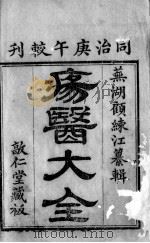 同治庚午較刊
蕪湖顧練江纂輯
瘍醫大全
敦仁堂藏板